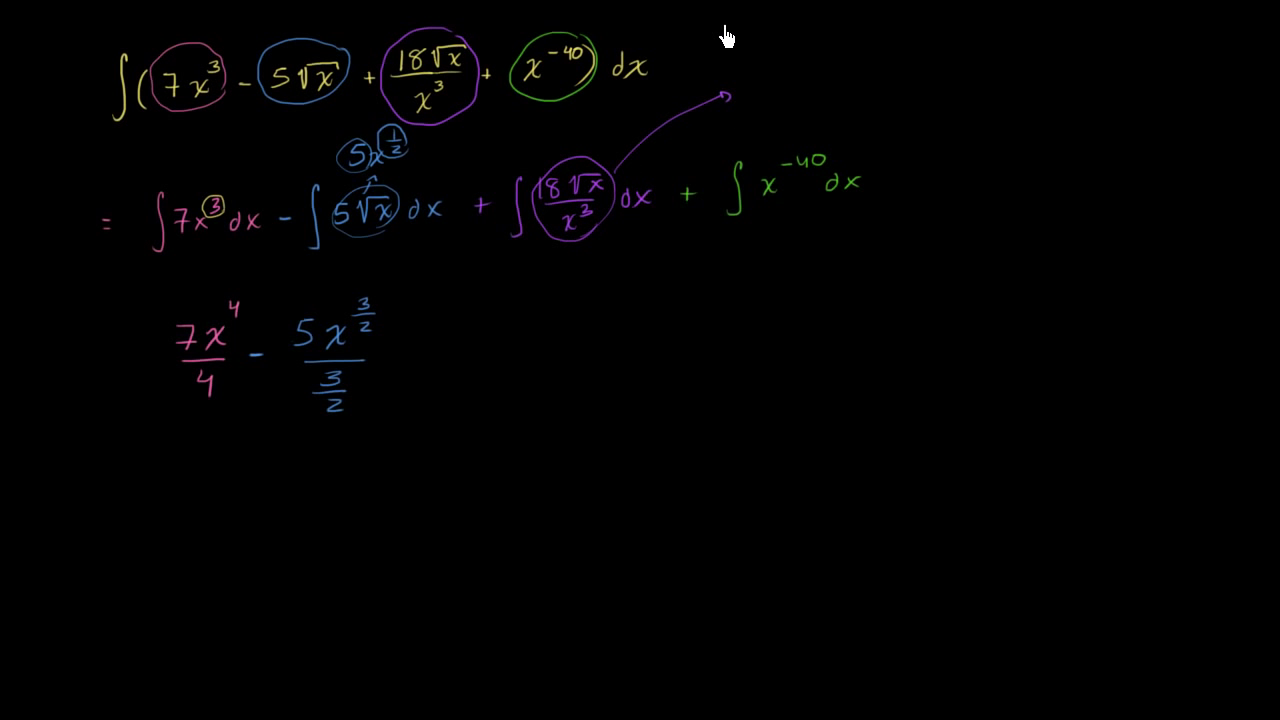 ∫(7x³ - 5√x + 18√x/x³ + x⁻⁴⁰) dx
5x^(1/2)
= ∫7x³dx - ∫5√x dx + ∫18√x/x³ dx + ∫x⁻⁴⁰dx
7x⁴/4 - 5x^(3/2)/(3/2)